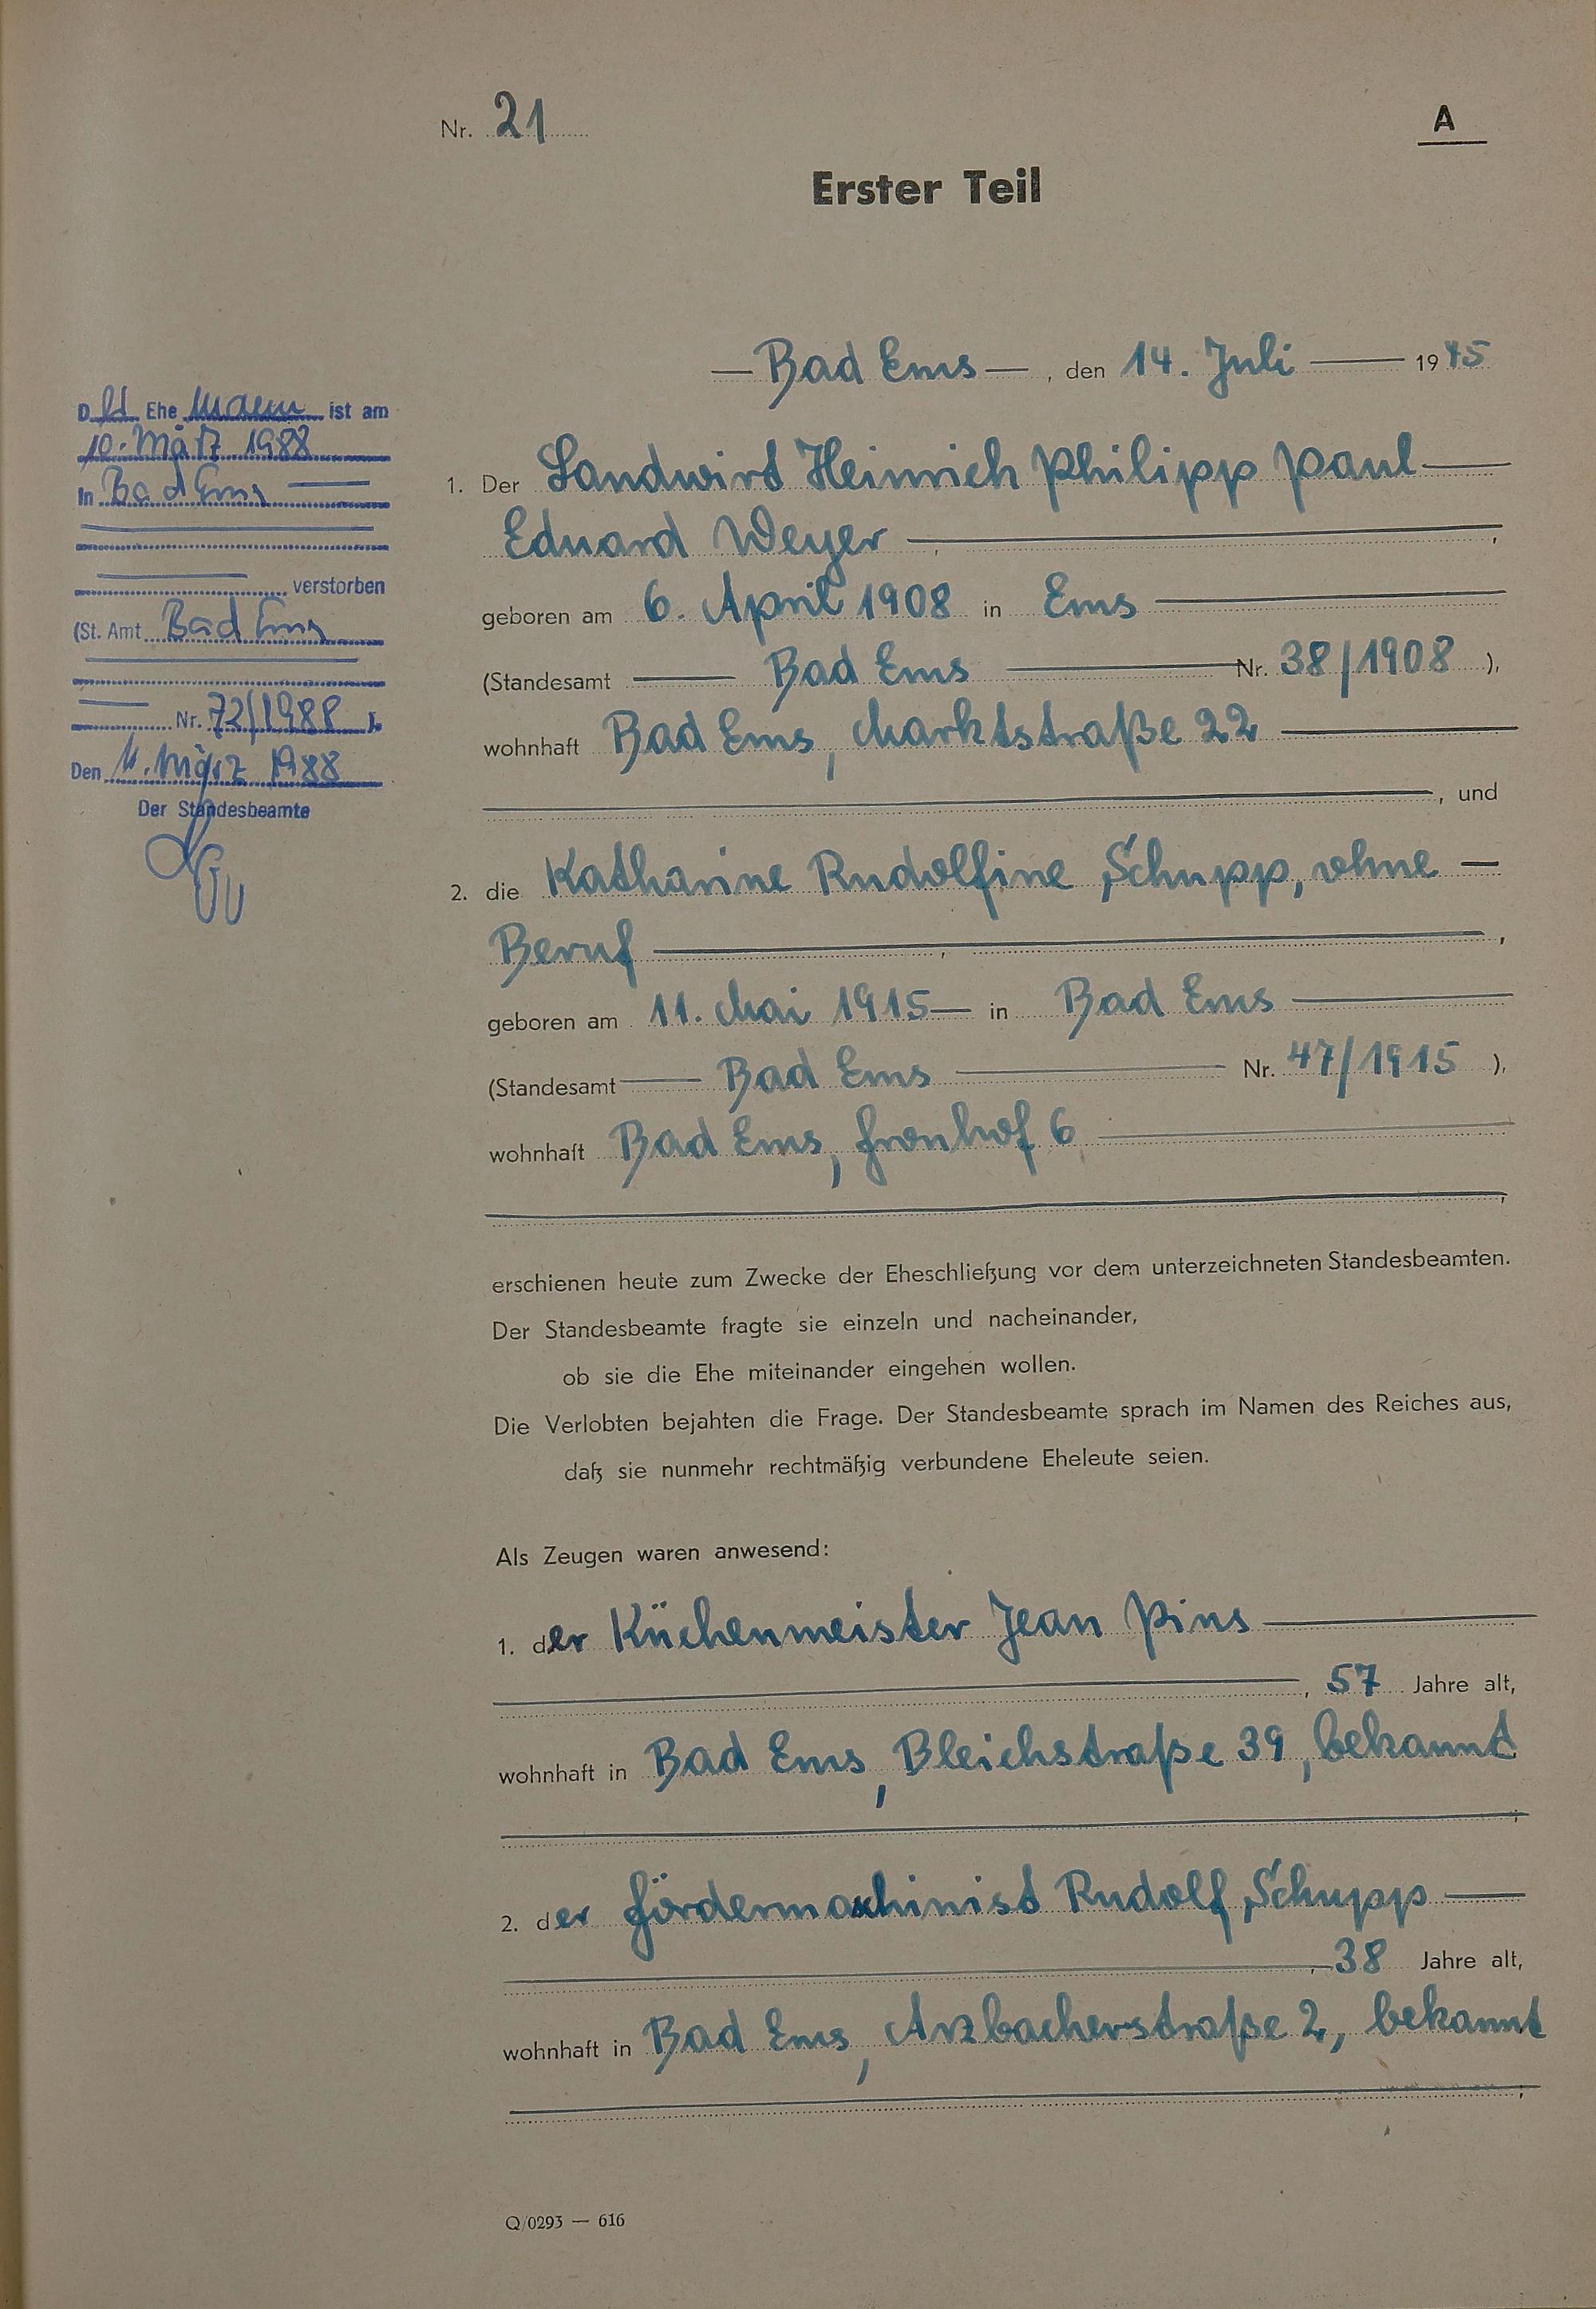 Nr. 21
A
Erster Teil
Bad Ems, den 14. Juli 1945
Der Ehemann ist am
10. März 1988
in Bad Ems
verstorben
(St. Amt Bad Ems
Nr. 72/1988
Den 11. März 1988
Der Standesbeamte
1. Der Landwirt Heinrich Philipp Paul
Eduard Weyer,
geboren am 6. April 1908 in Ems
(Standesamt Bad Ems Nr. 38/1908),
wohnhaft Bad Ems, Marktstraße 22
, und
2. die Katharine Rudolfine Schupp, ohne
Beruf,
geboren am 11. Mai 1915 in Bad Ems
(Standesamt Bad Ems Nr. 47/1915),
wohnhaft Bad Ems, Fronhof 6
,
erschienen heute zum Zwecke der Eheschließung vor dem unterzeichneten Standesbeamten.
Der Standesbeamte fragte sie einzeln und nacheinander,
ob sie die Ehe miteinander eingehen wollen.
Die Verlobten bejahten die Frage. Der Standesbeamte sprach im Namen des Reiches aus,
daß sie nunmehr rechtmäßig verbundene Eheleute seien.
Als Zeugen waren anwesend:
1. der Küchenmeister Jean Pins
, 57 Jahre alt,
wohnhaft in Bad Ems, Bleichstraße 39, bekannt
;
2. der Fördermaschinist Rudolf Schupp
, 38 Jahre alt,
wohnhaft in Bad Ems, Arzbacherstraße 2, bekannt
;
Q/0293 — 616